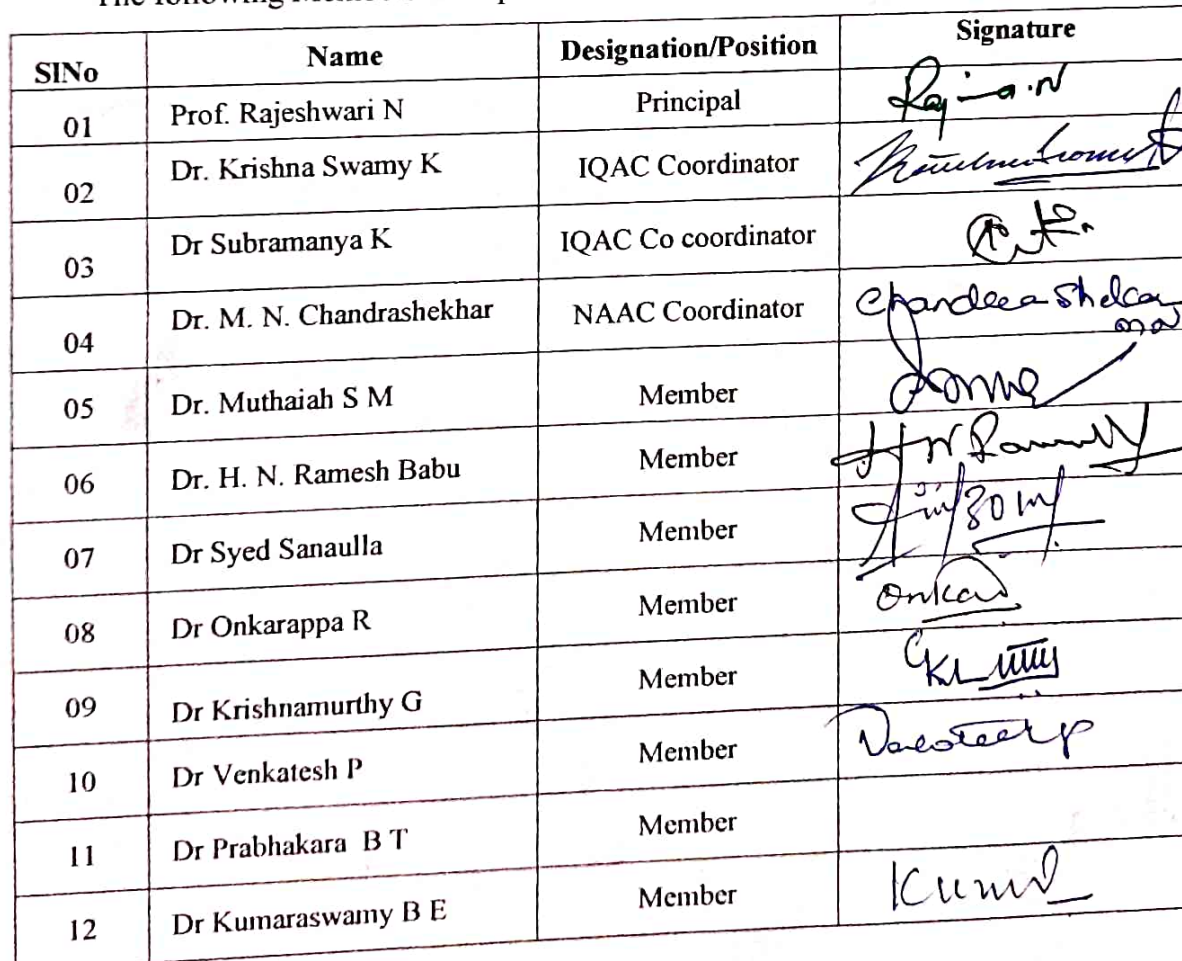 The following Mem
SlNo Name Designation/Position Signature
01 Prof. Rajeshwari N Principal
02 Dr. Krishna Swamy K IQAC Coordinator
03 Dr Subramanya K IQAC Co coordinator
04 Dr. M. N. Chandrashekhar NAAC Coordinator
05 Dr. Muthaiah S M Member
06 Dr. H. N. Ramesh Babu Member
07 Dr Syed Sanaulla Member
08 Dr Onkarappa R Member
09 Dr Krishnamurthy G Member
10 Dr Venkatesh P Member
11 Dr Prabhakara B T Member
12 Dr Kumaraswamy B E Member